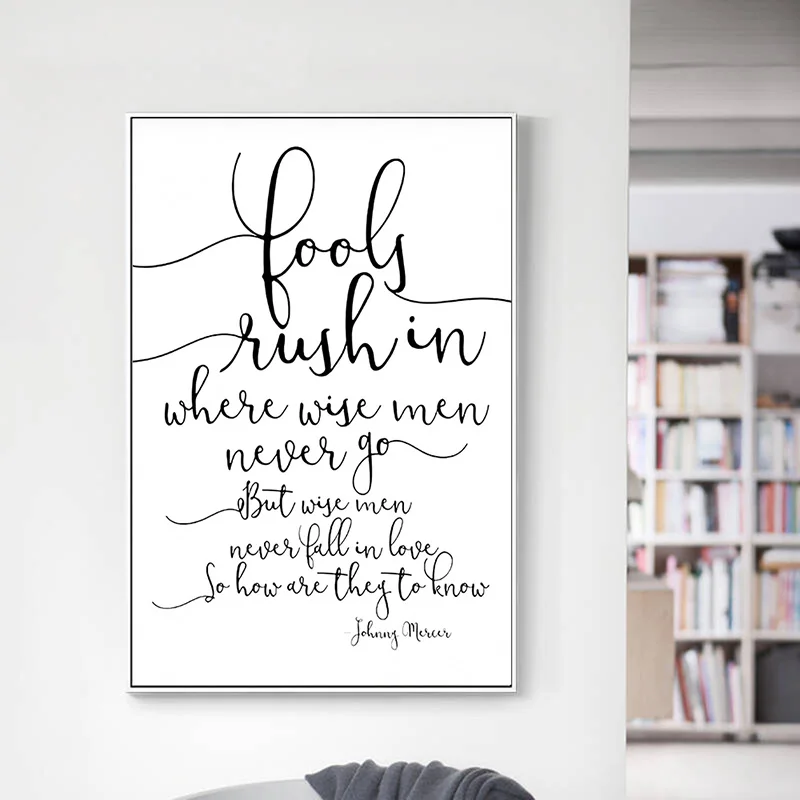 fools
rush in
where wise men
never go
But wise men
never fall in love
So how are they to know
-Johnny Mercer